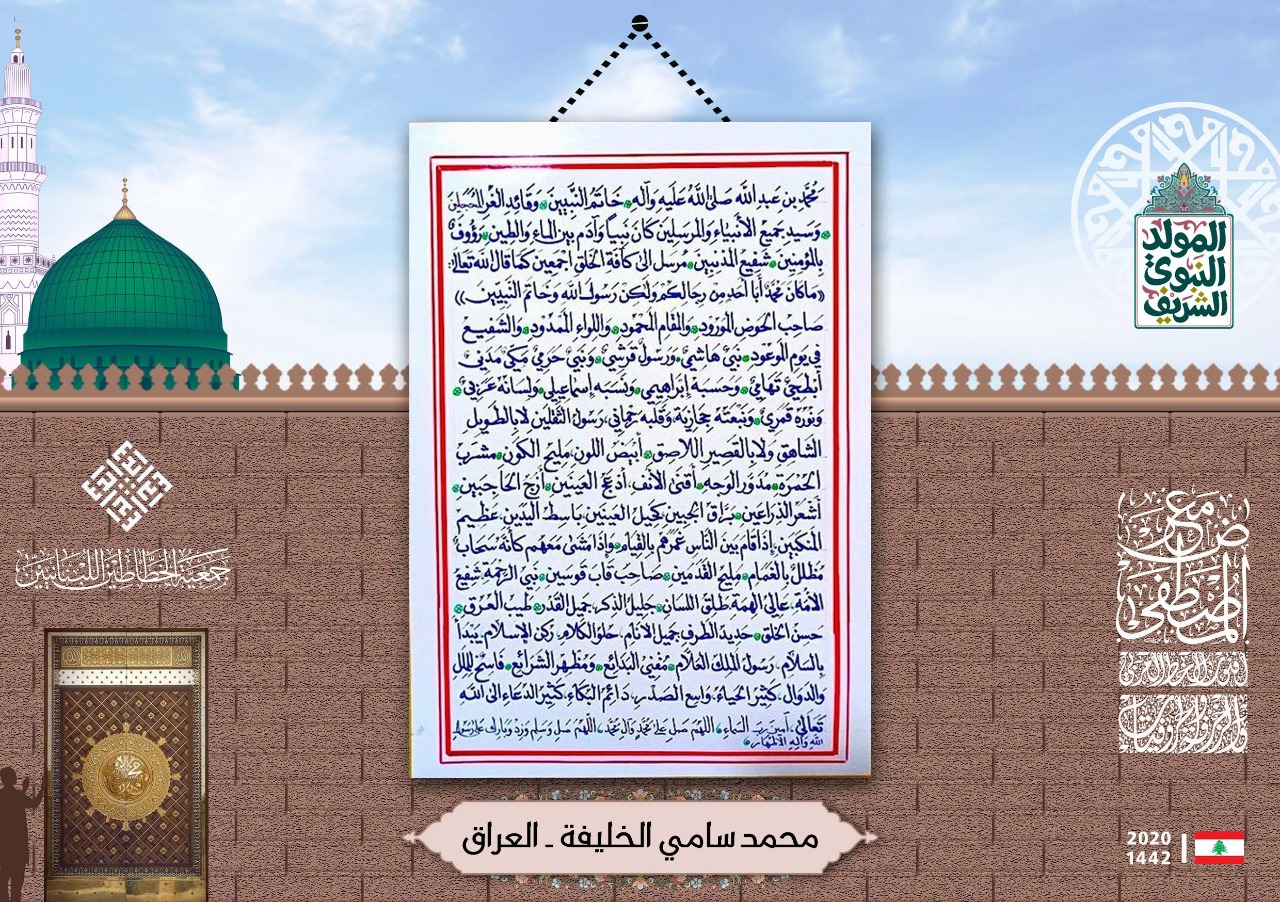 محمد بن عبد الله صلى الله عليه وآله خاتم النبيين وقائد الغر المحجلين
وسيد جميع الأنبياء والمرسلين كان نبيا وآدم بين الماء والطين رؤوف
بالمؤمنين شفيع المذنبين مرسل الى كافة الخلق اجمعين كما قال الله تعالى:
((ما كان محمد أبا أحد من رجالكم ولكن رسول الله وخاتم النبيين))
صاحب الحوض المورود والمقام المحمود واللواء الممدود والشفيع
في يوم الموعود نبي هاشمي ورسول قرشي ونبي حرمي مكي مدني
أبطحي تهامي وحسبه إبراهيمي ونسبه إسماعيلي ولسانه عربي
ونوره قمري ونبعته حجازية وقلبه رحماني رسول الثقلين لا بالطويل
الشاهق ولا بالقصير اللاصق أبيض اللون مليح الكون مشرب
الحمرة مدور الوجه أقنى الأنف أدعج العينين أزج الحاجبين
أشعر الذراعين براق الجبين كحيل العينين باسط اليدين عظيم
المنكبين إذا قام بين الناس غمرهم بالقيام وإذا مشى معهم كأنه سحاب
مظلل بالغمام مليح القدمين صاحب قاب قوسين نبي الرحمة شفيع
الأمة عالي الهمة طلق اللسان جليل الذكر جميل القدر طيب العرق
حسن الخلق حديد الطرف جميل الأنام حلو الكلام ركن الإسلام يبدأ
بالسلام رسول الملك العلام مفني البدائع ومظهر الشرائع فاسخ الملل
والدوال كثير الحياء واسع الصدر دائم البكاء كثير الدعاء الى الله
تعالى آمين رب السماء اللهم صل على محمد وآل محمد اللهم صل وسلم وزد وبارك على رسول
الله وآله الأطهار
المولد
النبوي
الشريف
جمعية الخطاطين اللبنانيين
معرض
المصطفى
محمد سامي الخليفة - العراق
2020
1442